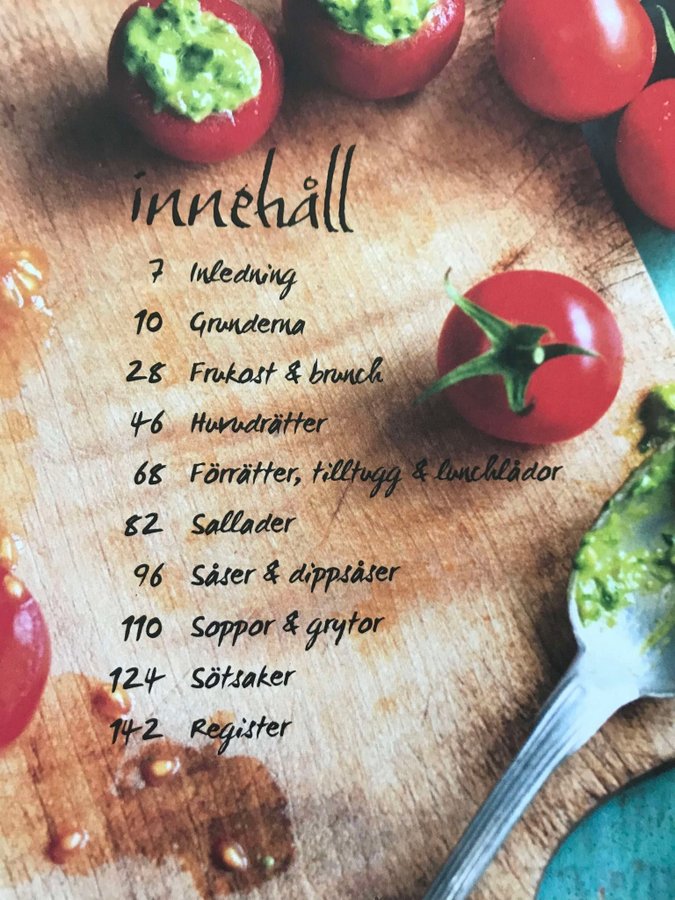 innehåll
7 Inledning
10 Grunderna
28 Frukost & brunch
46 Huvudrätter
68 Förrätter, tilltugg & lunchlådor
82 Sallader
96 Såser & dippsåser
110 Soppor & grytor
124 Sötsaker
142 Register